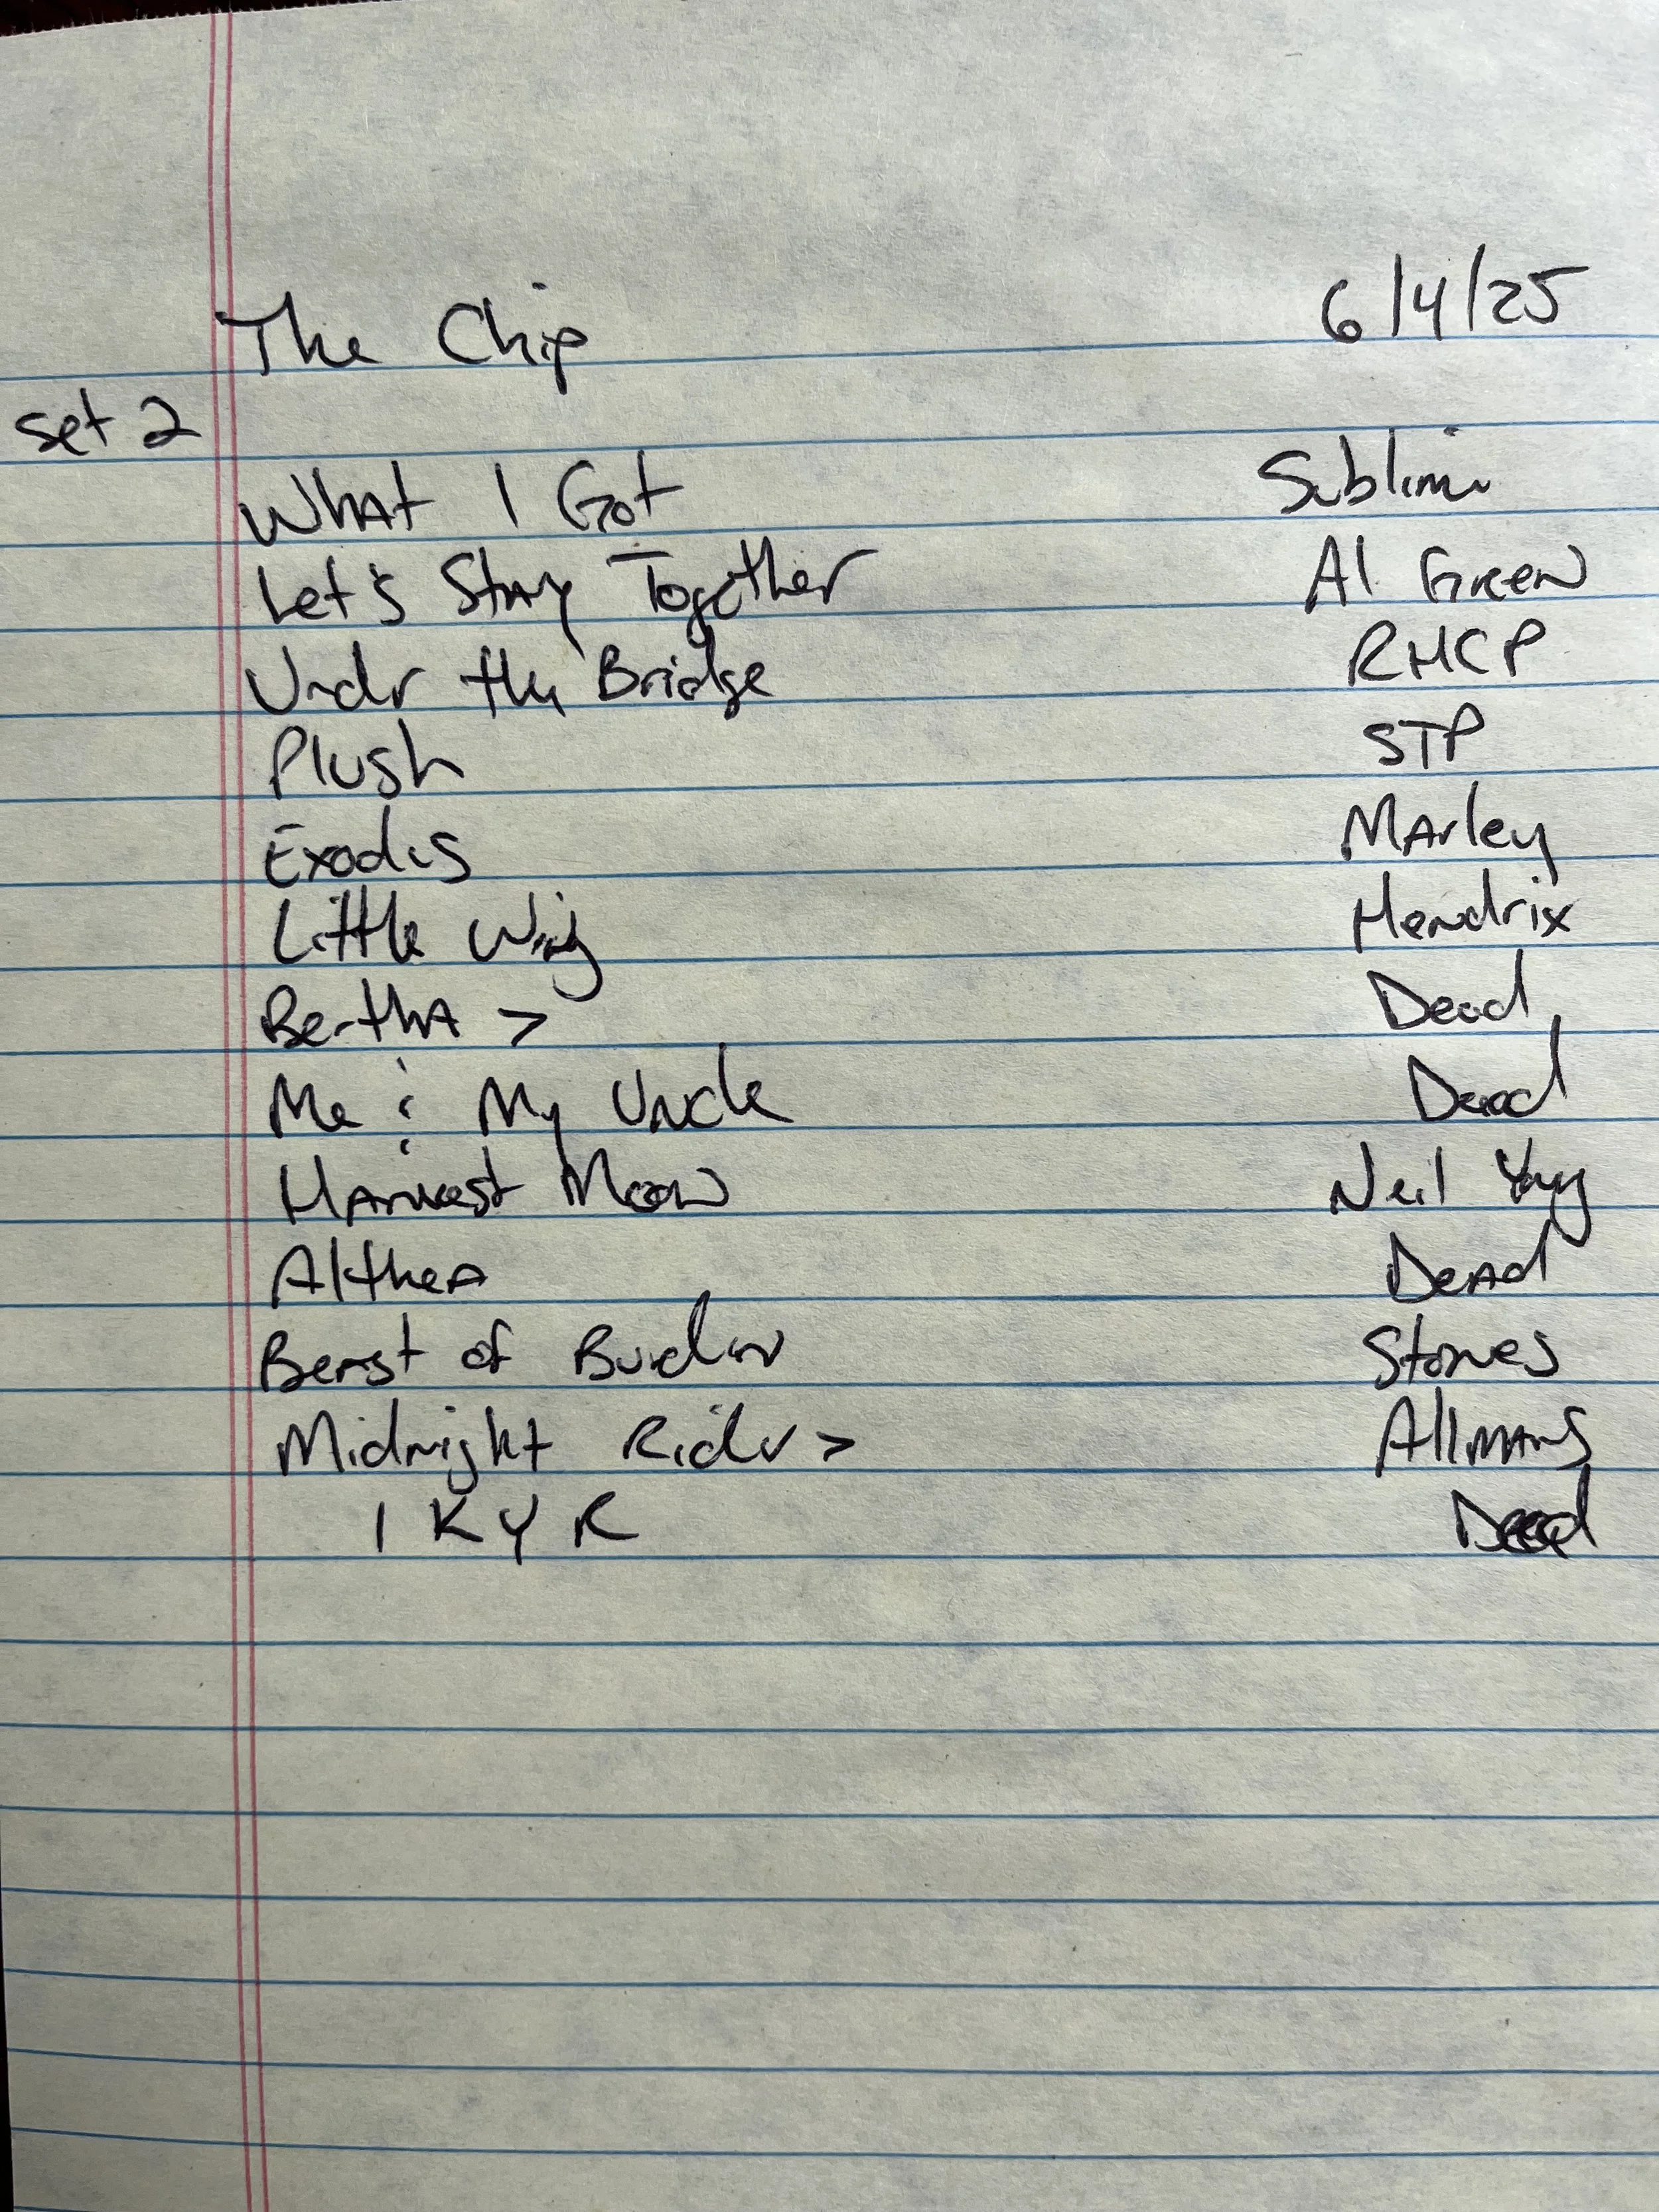 The Chip 6/4/25
Set 2
What I Got Sublime
Let's Stay Together Al Green
Under the Bridge RHCP
Plush STP
Exodus Marley
Little Wing Hendrix
Bertha > Dead
Me & My Uncle Dead
Harvest Moon Neil Young
Althea Dead
Beast of Burden Stones
Midnight Rider > Allmans
I K Y R Dead